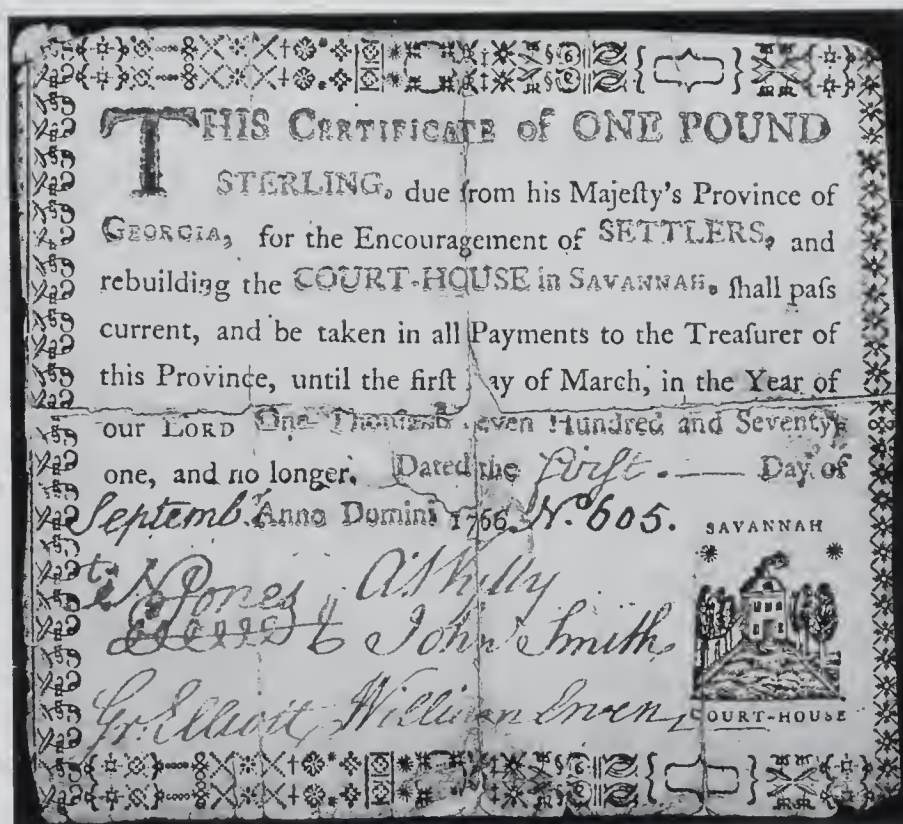 THIS CERTIFICATE of ONE POUND
STERLING, due from his Majeſty's Province of
GEORGIA, for the Encouragement of SETTLERS, and
rebuilding the COURT-HOUSE in SAVANNAH, ſhall paſs
current, and be taken in all Payments to the Treaſurer of
this Province, until the firſt ay of March, in the Year of
our LORD One Thouſand even Hundred and Seventy-
one, and no longer. Dated the Firſt Day of
Septembr. Anno Domini 1766. No. 605.
SAVANNAH
N Jones
John Smith
Gr. Elliott William Ewen
COURT-HOUSE